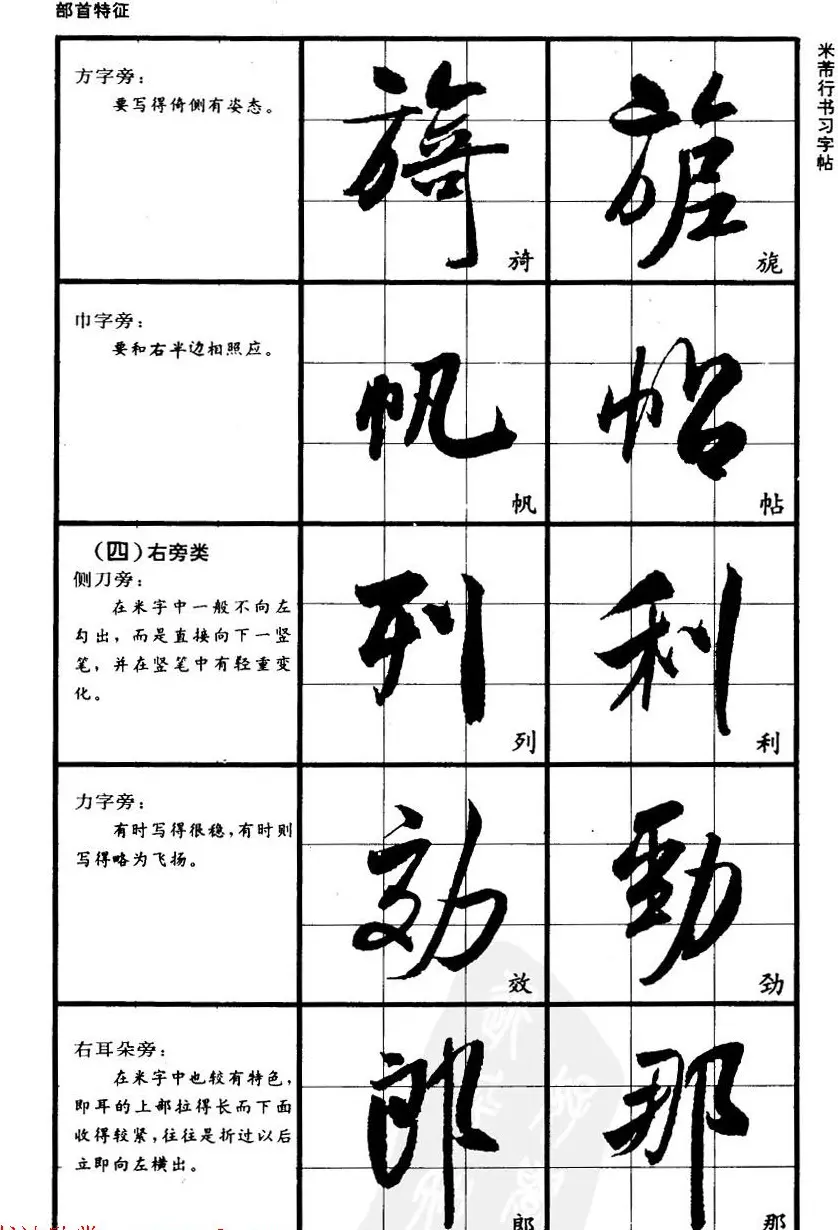 部首特征
米芾行书习字帖
方字旁：
要写得倚侧有姿态。
旑
旎
巾字旁：
要和右半边相照应。
帆
帖
（四）右旁类
侧刀旁：
在米字中一般不向左
勾出，而是直接向下一竖
笔，并在竖笔中有轻重变
化。
列
利
力字旁：
有时写得很稳，有时则
写得略为飞扬。
效
劲
右耳朵旁：
在米字中也较有特色，
即耳的上部拉得长而下面
收得较紧，往往是折过以后
立即向左横出。
郎
那